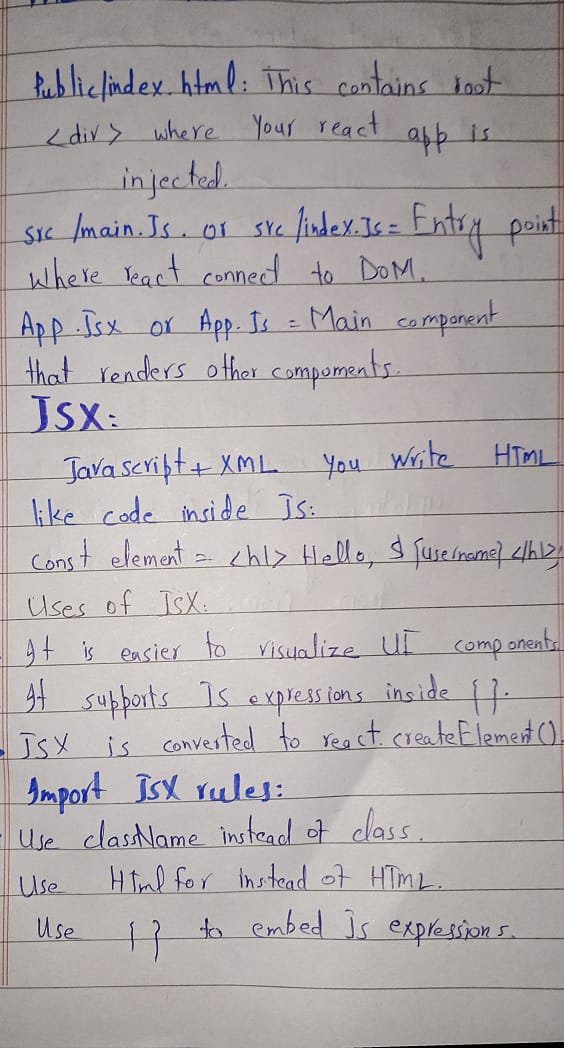 Public/index.html: This contains root
<div> where your react app is
injected.
src /main.Js. or src /index.Js = Entry point
Where react connect to DOM.
App.Jsx or App.Js = Main component
that renders other compoments.
JSX:
Javascript + XML you write HTML
like code inside Js:
Const element = <h1> Hello, $ {username} </h1>;
Uses of JSX:
It is easier to visualize UI components
It supports Js expressions inside { }.
JSX is converted to react.createElement()
Import JSX rules:
Use className instead of class.
Use Html for instead of HTML.
Use { } to embed js expressions.